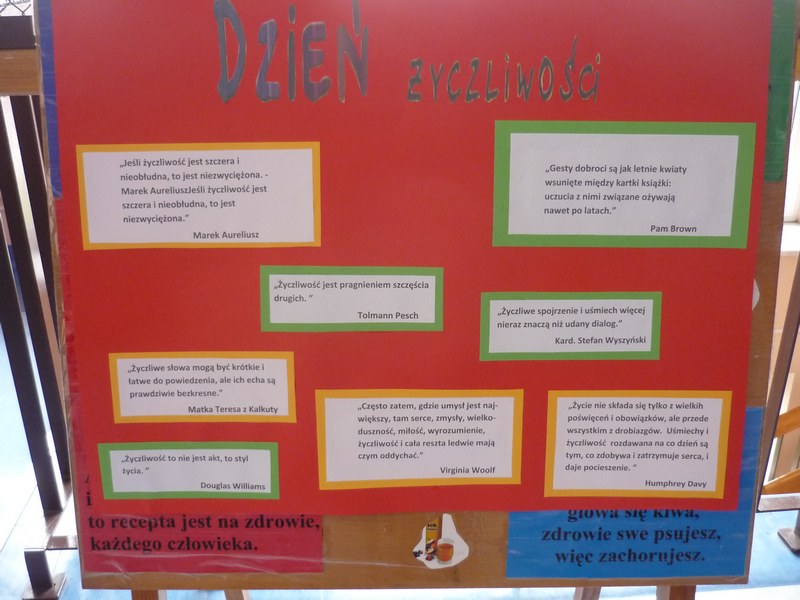 Dzień życzliwości
„Jeśli życzliwość jest szczera i
nieobłudna, to jest niezwyciężona. -
Marek AureliuszJeśli życzliwość jest
szczera i nieobłudna, to jest
niezwyciężona.“
Marek Aureliusz
„Gesty dobroci są jak letnie kwiaty
wsunięte między kartki książki:
uczucia z nimi związane ożywają
nawet po latach.“
Pam Brown
„Życzliwość jest pragnieniem szczęścia
drugich. “
Tolmann Pesch
„Życzliwe spojrzenie i uśmiech więcej
nieraz znaczą niż udany dialog.“
Kard. Stefan Wyszyński
„Życzliwe słowa mogą być krótkie i
łatwe do powiedzenia, ale ich echa są
prawdziwie bezkresne.“
Matka Teresa z Kalkuty
„Często zatem, gdzie umysł jest naj-
większy, tam serce, zmysły, wielko-
duszność, miłość, wyrozumienie,
życzliwość i cała reszta ledwie mają
czym oddychać.“
Virginia Woolf
„Życie nie składa się tylko z wielkich
poświęceń i obowiązków, ale przede
wszystkim z drobiazgów. Uśmiechy i
życzliwość rozdawana na co dzień są
tym, co zdobywa i zatrzymuje serca, i
daje pocieszenie. “
Humphrey Davy
„Życzliwość to nie jest akt, to styl
życia. “
Douglas Williams
i
to recepta jest na zdrowie,
każdego człowieka.
głowa się kiwa,
zdrowie swe psujesz,
więc zachorujesz.